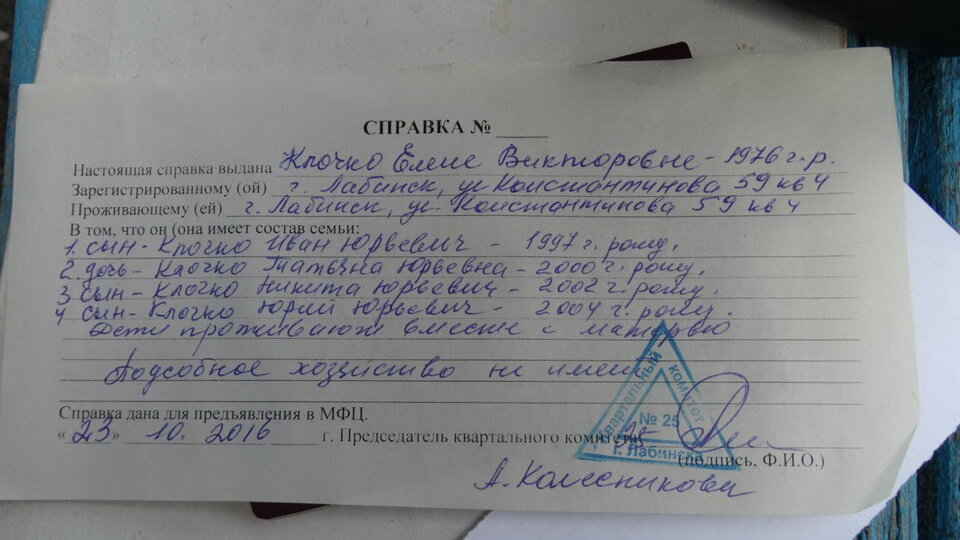 СПРАВКА № _____
Настоящая справка выдана Клочко Елене Викторовне - 1976 г.р.
Зарегистрированному (ой) г. Лабинск, ул Константинова 59 кв 4
Проживающему (ей) г. Лабинск, ул. Константинова 59 кв 4
В том, что он (она имеет состав семьи:
1. сын - Клочко Иван Юрьевич - 1997 г. рожд.
2. дочь - Клочко Татьяна Юрьевна - 2000 г. рожд.
3 сын - Клочко Никита Юрьевич - 2002 г. рожд.
4 сын - Клочко Юрий Юрьевич - 2004 г. рожд.
Дети проживают вместе с матерью
Подсобное хозяйство не имеет
Справка дана для предъявления в МФЦ.
« 23 » 10. 2016 г. Председатель квартального комитета
(подпись, Ф.И.О.)
А. Колесникова
Квартальный комитет
№ 25
г. Лабинск